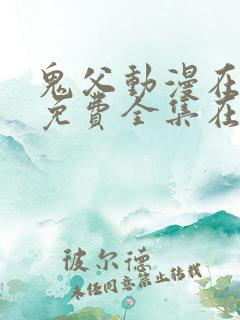 鬼父動漫在
免費全集在
彼尔德
未经同意禁止转载